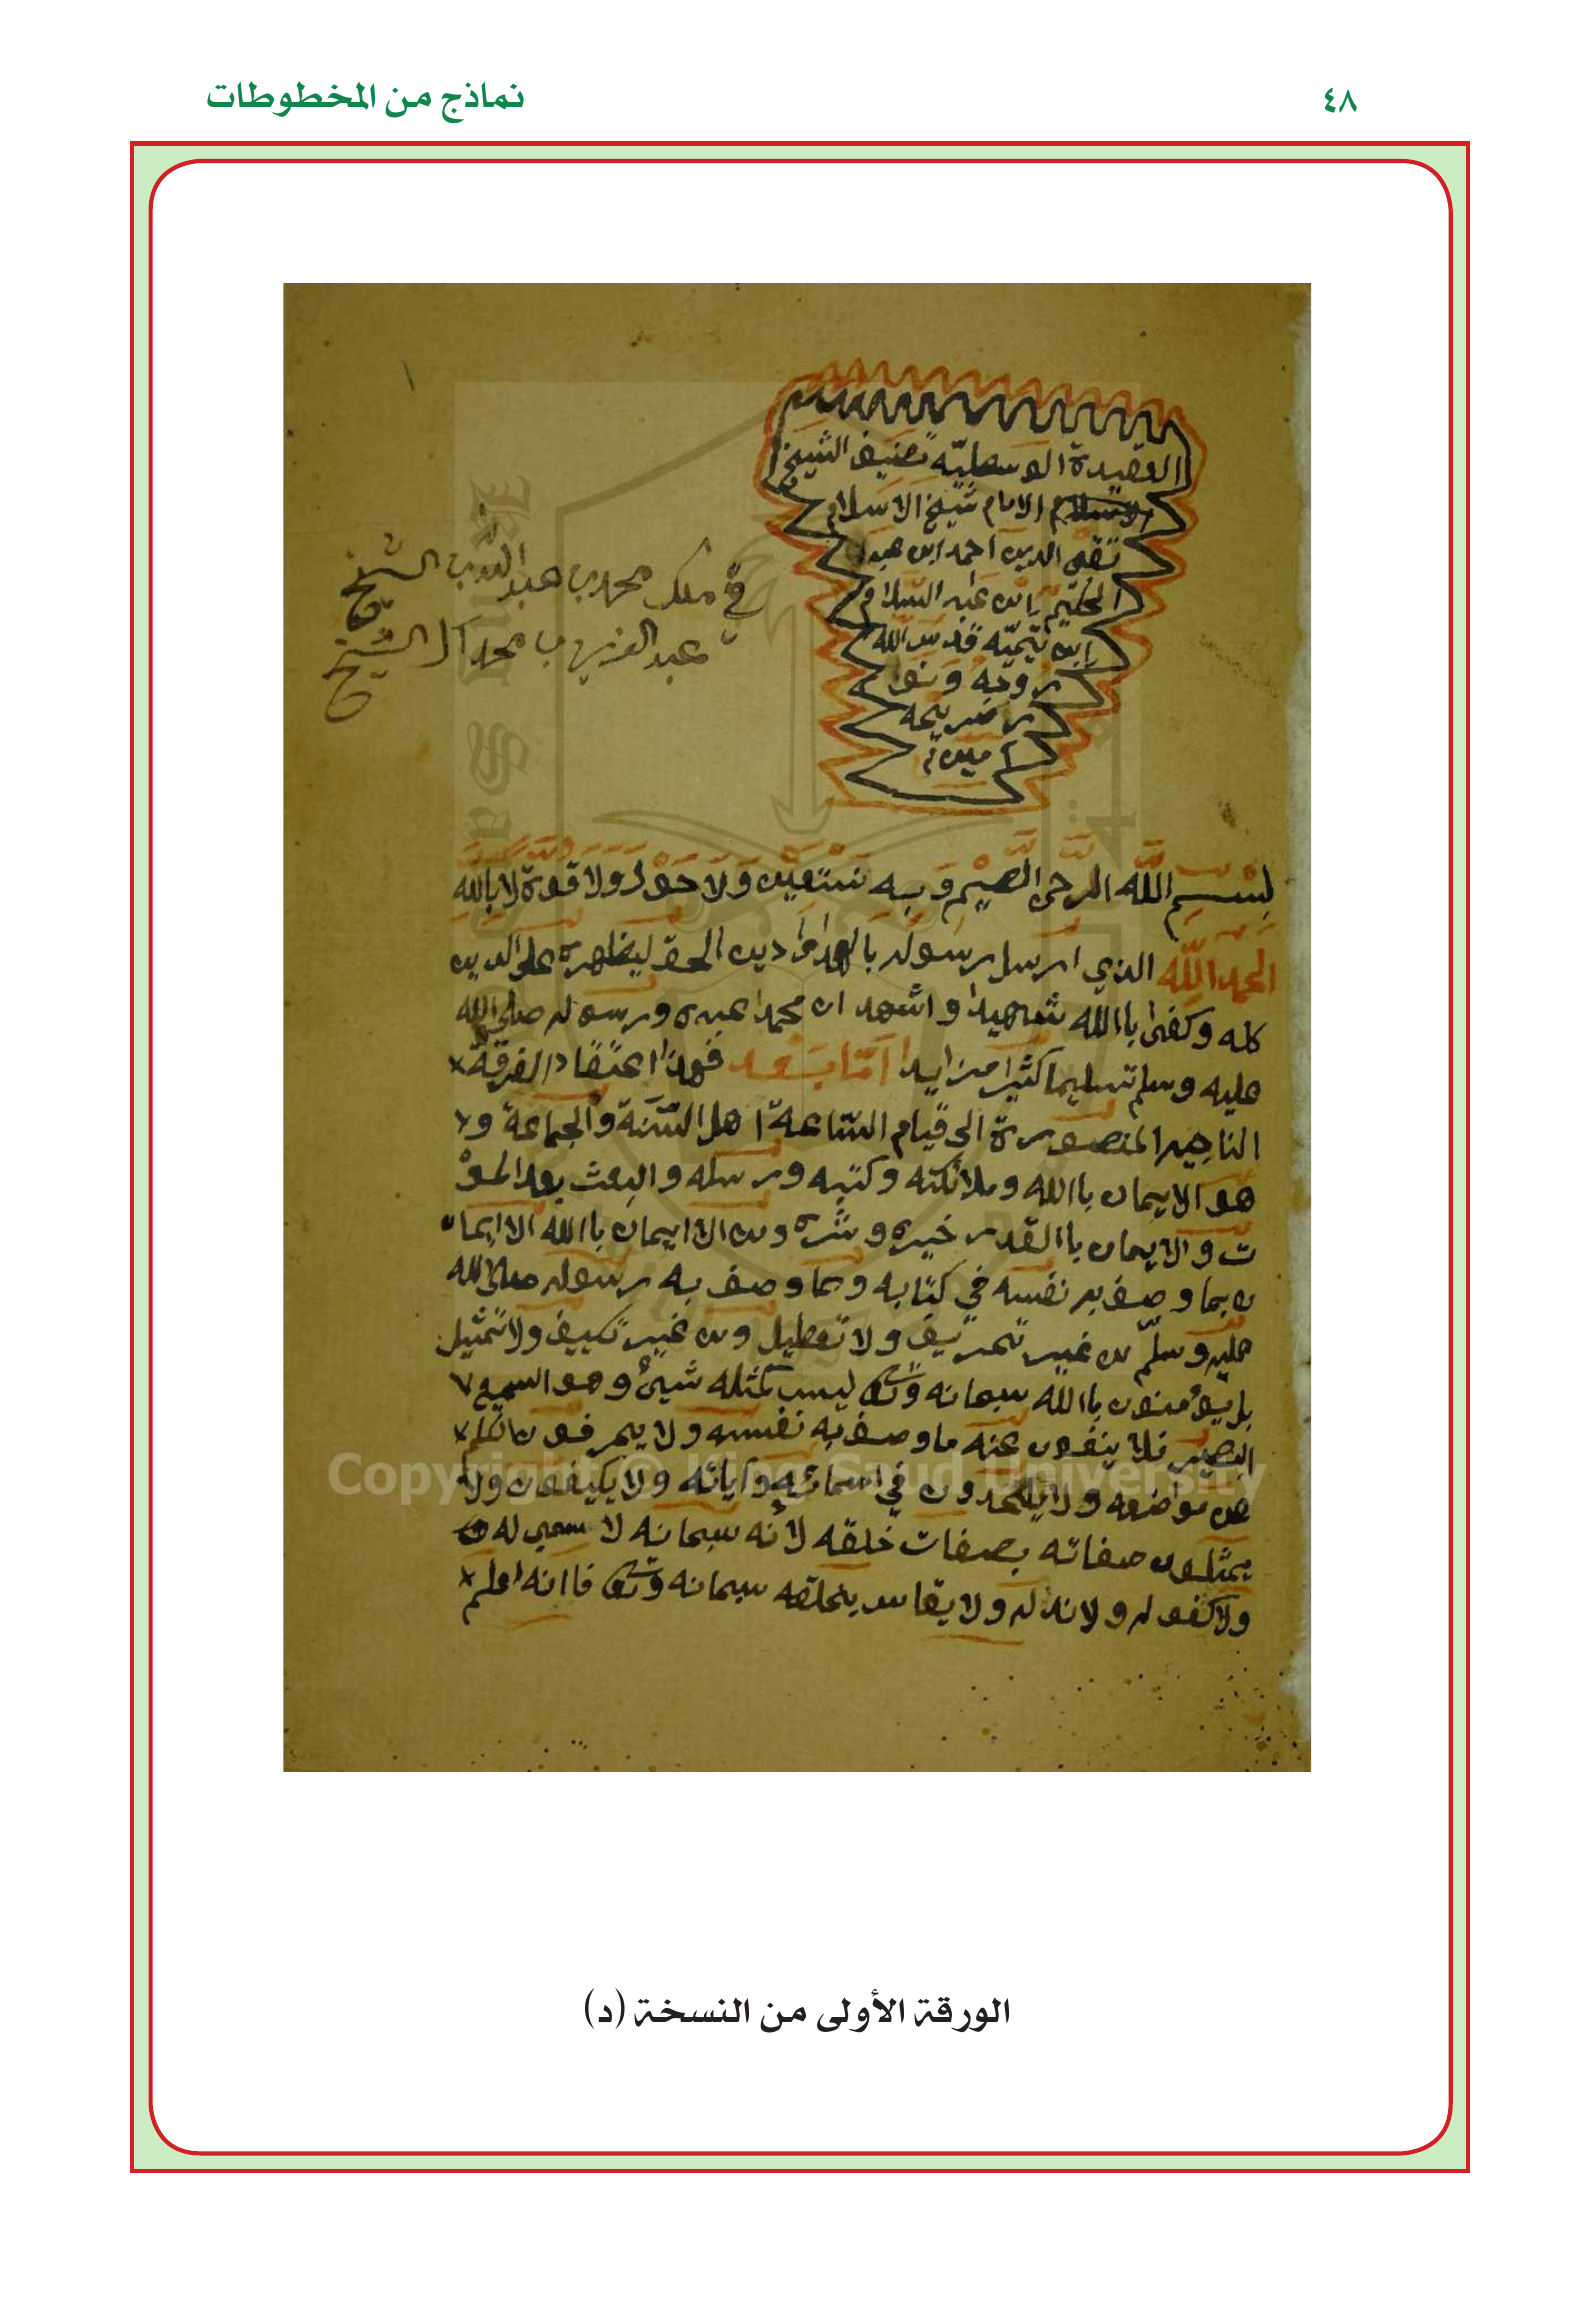 ٤٨
نماذج من المخطوطات
العقيدة الوسطية تصنيف الشيخ
الامام شيخ الاسلام
تقي الدين احمد ابن عبد
الحليم ابن عبد السلام
ابن تيمية قدس الله
روحه ونور
ضريحه
آمين
في ملك محمد بن عبد اللـه بن الشيخ
عبد العزيز بن محمد آل الشيخ
بسم الله الرحمن الرحيم وبه نستعين ولا حول ولا قوة الا بالله
الحمد الله الذي ارسل رسوله بالهدا ودين الحق ليظهره على الدين
كله وكفى باالله شهيدا واشهد ان محمدا عبده ورسوله صلى الله
عليه وسلم تسليما كثيرا مزايدا اما بعد فهذا اعتقاد الفرقة
الناجيه المنصورة الى قيام الساعة اهل السنة والجماعة و
هو الايمان باالله وملائكته وكتبه ورسله والبعث بعد المو
ت والايمان باالقدر خيره وشره ومن الايمان باالله الايما
ن بما وصف به نفسه في كتابه وبما وصف به رسوله صلى الله
عليه وسلم من غير تحريف ولا تعطيل ومن غير تكييف ولا تمثيل
بل يؤمنون باالله سبحانه وتعالى ليس كمثله شيئ وهو السميع
البصير فلا ينفون عنه ما وصف به نفسه ولا يحرفون الكلم
عن مواضعه ولا يلحدون في اسمائه وآياته ولا يكيفون ولا
يمثلون صفاته بصفات خلقه لأنه سبحانه لا سمي له
ولا كفو له ولا ند له ولا يقاس بخلقه سبحانه وتعالى فاانه اعلم
Copyright © King Saud University
الورقة الأولى من النسخة (د)